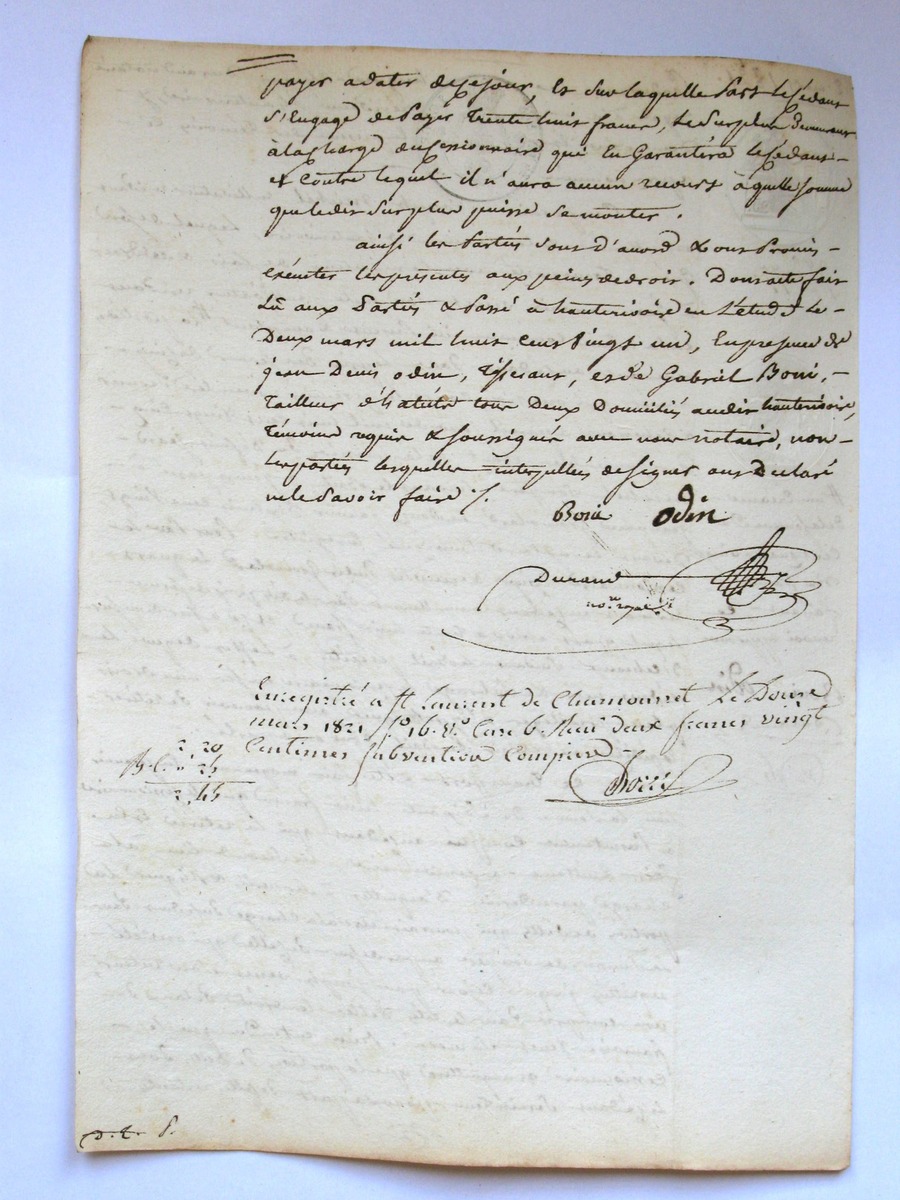 payer a dater de ce jour, Et Sur laquelle Part le Cédant
S'Engage de Payer Trente huit francs, Le Surplus Demeurant
à la charge du Cessionnaire qui En Garantira le Cédant -
et Contre lequel il n'aura aucun recours à quelle Somme
que ledit Surplus puisse Se monter.
ainsi les Parties Sont d'accord & ont Promis -
exécuter les présentes aux peines de droit. Dont acte fait
Lû aux Parties & Passé à hauterivoire en L'étude Le -
Deux mars mil huit cent Vingt un, En presence de
jean Denis odin, Tisserant, et de Gabriel Boni, -
Tailleur d'habits tous Deux Domiciliés audit hauterivoire,
Témoins requis & soussignés avec nous notaire, non -
les parties lesquelles interpellées de signer ont Declaré
ne le Savoir faire ./.
Boni Odin
Durand
no.re royal
Enregistré a St Laurent de Chamousset Le Douze
mars 1821 fo 16. Vo. Case 6. Reçu deux francs vingt
Centimes subvention Comprise -
2, 20
2, 45
D. E. S.